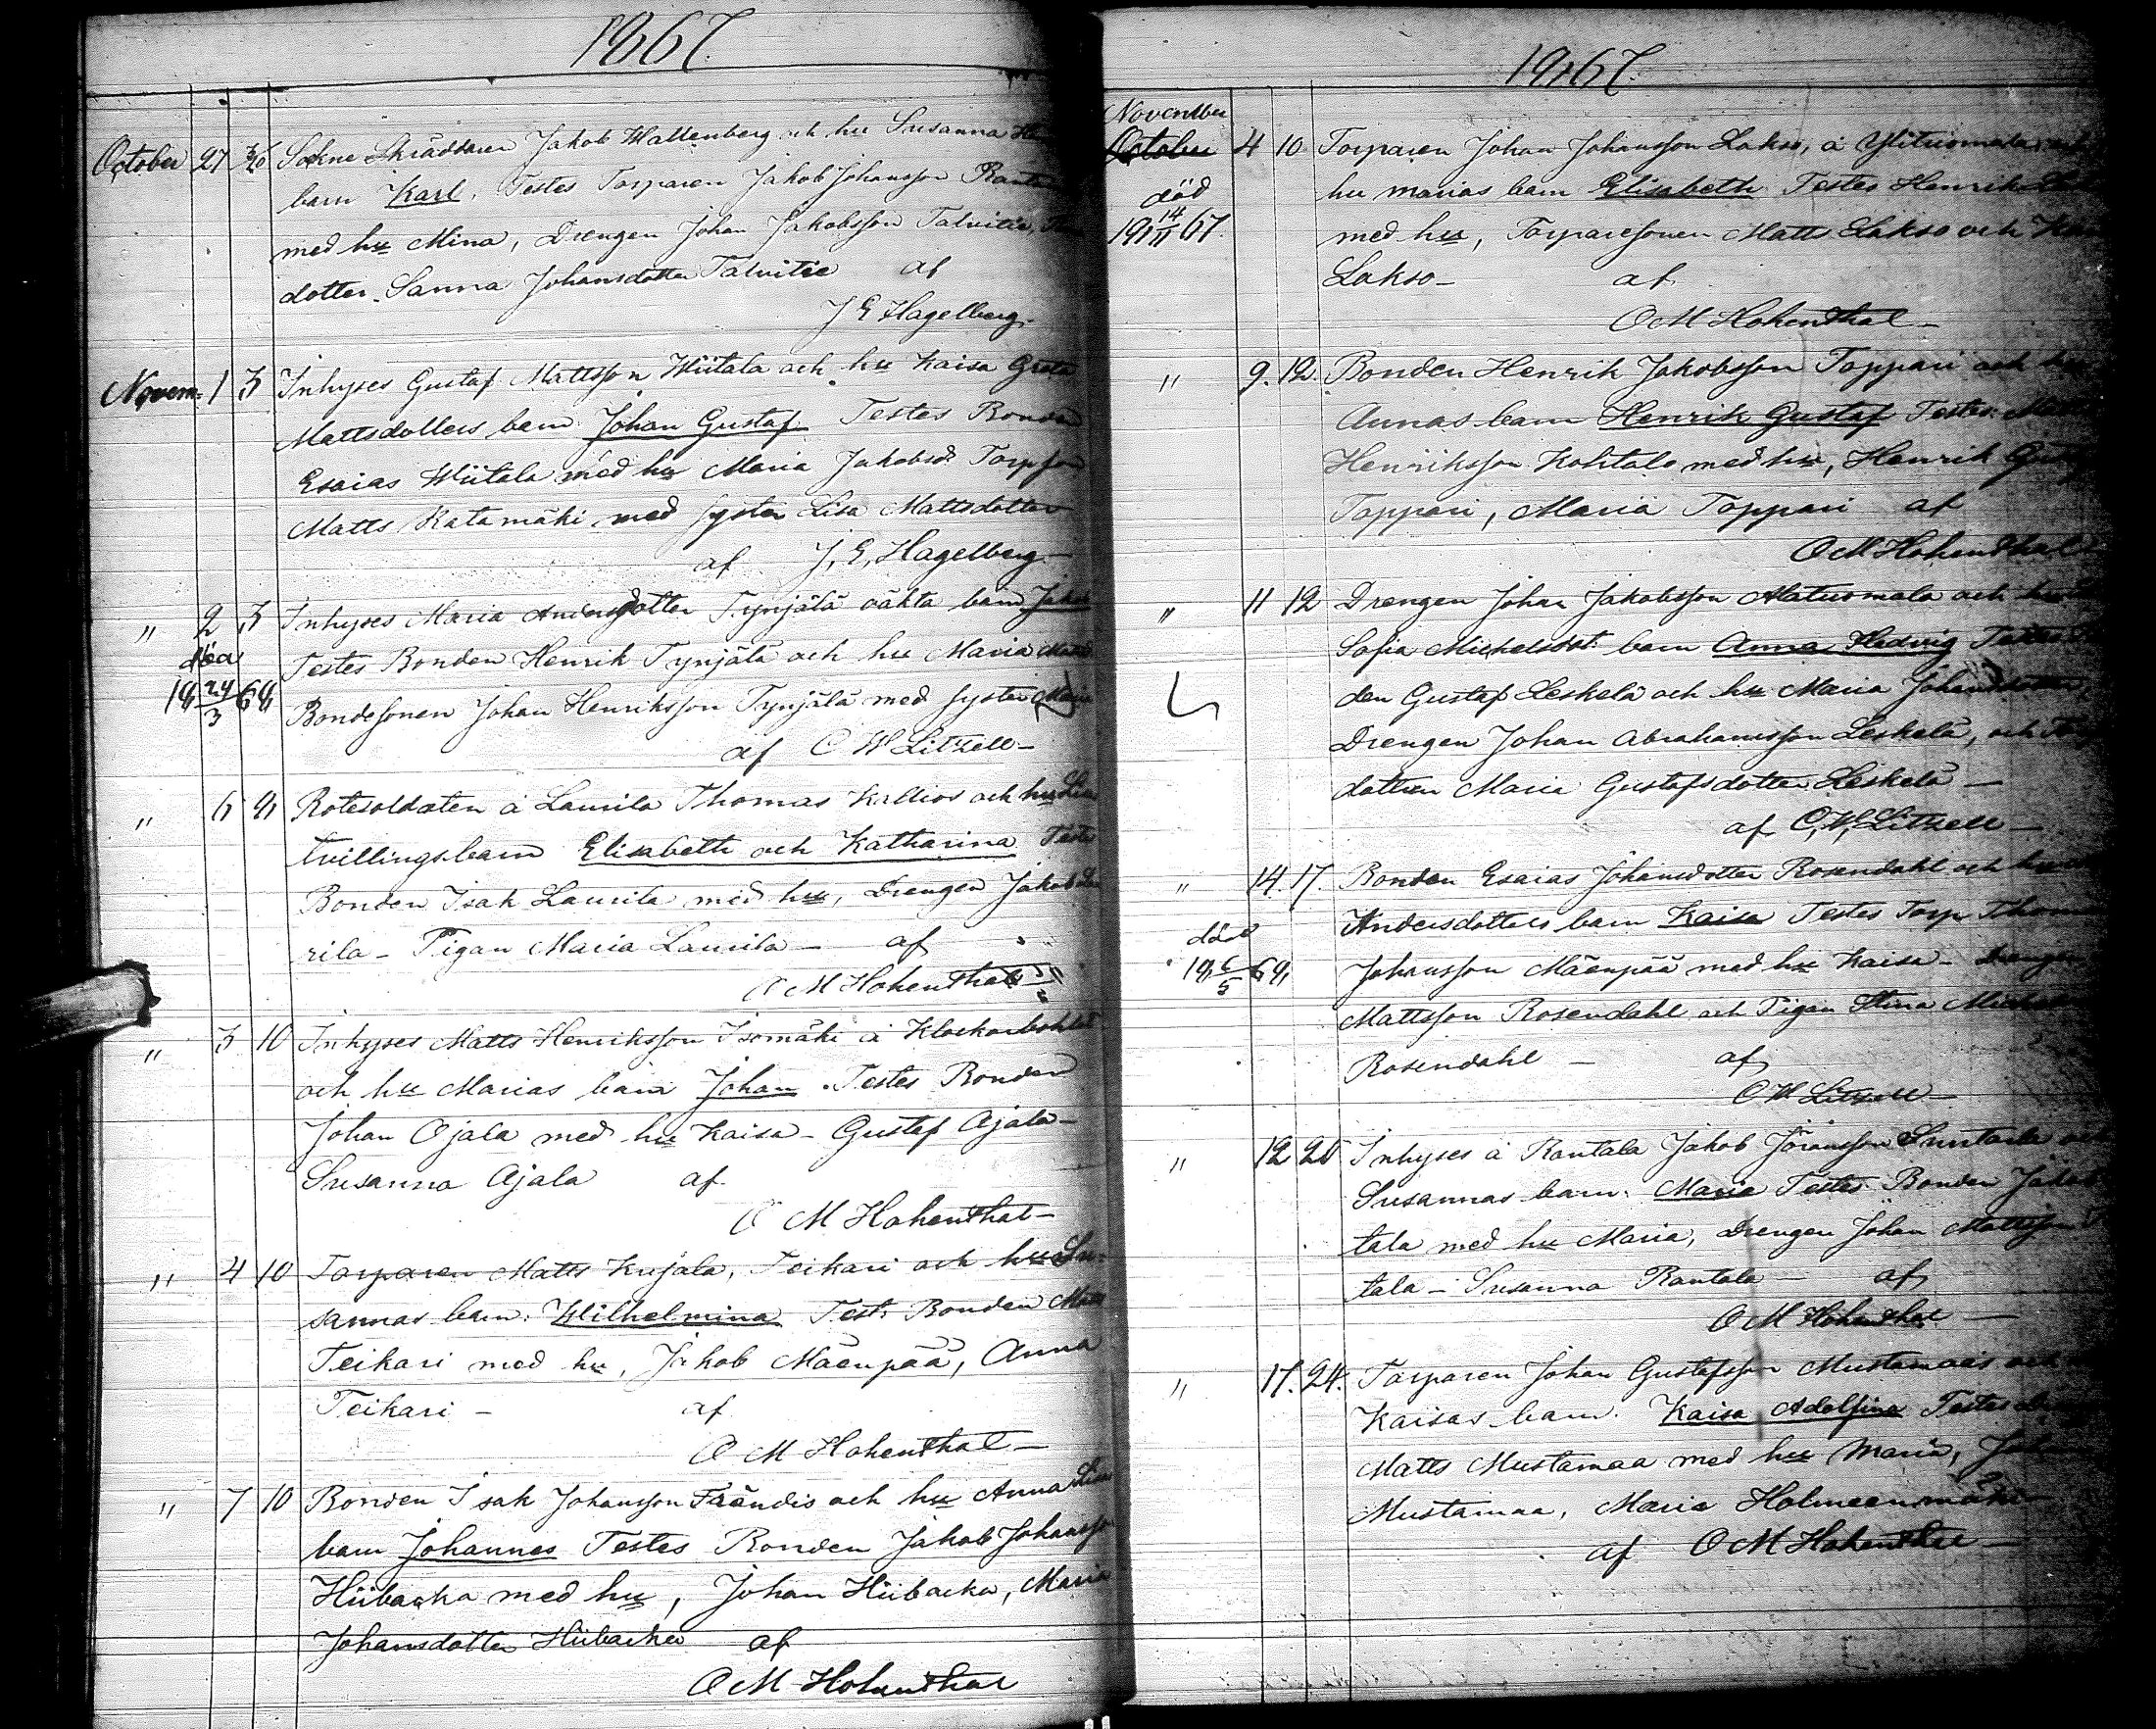 1867.
October 27 30 Sokne Skräddaren Jakob Wallenberg och hu Susanna
barn Karl. Testes Torparen Jakob Johansson
med hu Mina, Drengen Johan Jakobsson Talvitie,
dotter Sanna Johansdotter Talvitie af
J E Hagelberg.
Novem. 1 3 Inhyses Gustaf Mattsson Wiitala och hu Kaisa Greta
Mattsdotters barn Johan Gustaf Testes Bonden
Esaias Wiitala med hu Maria Jakobsd. Torpson
Matts Katamäki med syster Lisa Mattsdotter
af J. E. Hagelberg
" 2 3 Inhyses Maria Andersdotter Tynjälä oäkta barn Jakob
död Testes Bonden Henrik Tynjälä och hu Maria
18 24/3 68 Bondesonen Johan Henriksson Tynjälä med syster Maria
af C W Litzell
" 6 8 Rotesoldaten á Laurila Thomas Kallios och hu Lisas
tvillingsbarn Elisabeth och Katharina Testes
Bonden Isak Laurila med hu, Drengen Jakob Lau
rila - Pigan Maria Laurila - af
O M Hohenthal
" 3 10 Inhyses Matts Henriksson Isomäki á Klockarbohlet
och hu Marias barn Johan. Testes Bonden
Johan Ojala med hu Kaisa - Gustaf Ajala -
Susanna Ajala af
O M Hohenthal -
" 4 10 Torparen Matts Kujala, Teikari och hu Su-
sannas barn: Wilhelmina Test: Bonden Matts
Teikari med hu, Jakob Mäenpää, Anna
Teikari - af
O M Hohenthal -
" 7 10 Bonden Isak Johansson Frändis och hu Anna Lisas
barn Johannes Testes Bonden Jakob Johansson
Hiibacka med hu, Johan Hiibacka, Maria
Johansdotter Hiibacka af
O M Hohenthal
1867.
November
October 4 10 Torparen Johan Johansson Lakso, á Ylituomala
död hu marias barn Elisabeth Testes Henrik
18 14/11 67. med hu, Torparesonen Matts Lakso och
Lakso - af
O M Hohenthal -
" 9. 12. Bonden Henrik Jakobsson Toppari och
Annas barn Henrik Gustaf Testes:
Henriksson Kohtala med hu, Henrik
Toppari, Maria Toppari af
O M Hohenthal
" 11 12 Drengen Johan Jakobsson Alatuomala och hu
Sofia Michelsdot: barn Anna Hedvig Testes
den Gustaf Leskelä och hu Maria Johansdotter,
Drengen Johan Abrahamsson Leskelä, och
dottren Maria Gustafsdotter Leskelä -
af C. W. Litzell -
" 14. 17. Bonden Esaias Johansdotter Rosendahl och hu
död Andersdotters barn Kaisa Testes Torp. Thomas
18 6/5 68 Johansson Mäenpää med hu Kaisa - Drengen
Mattsson Rosendahl och Pigan Stina
Rosendahl - af
C W Litzell -
" 12 20 Inhyses á Rantala Jakob Göransson Luntala
Susannas barn: Maria Testes: Bonden Jakob
tala med hu Maria, Drengen Johan Mattsson
tala - Susanna Rantala - af
O M Hohenthal -
" 17. 24. Torparen Johan Gustafsson Mustamaas och
Kaisas barn. Kaisa Adolfina Testes
Matts Mustamaa med hu Maria,
Mustamaa, Maria Holmeenmäki
af O M Hohenthal -